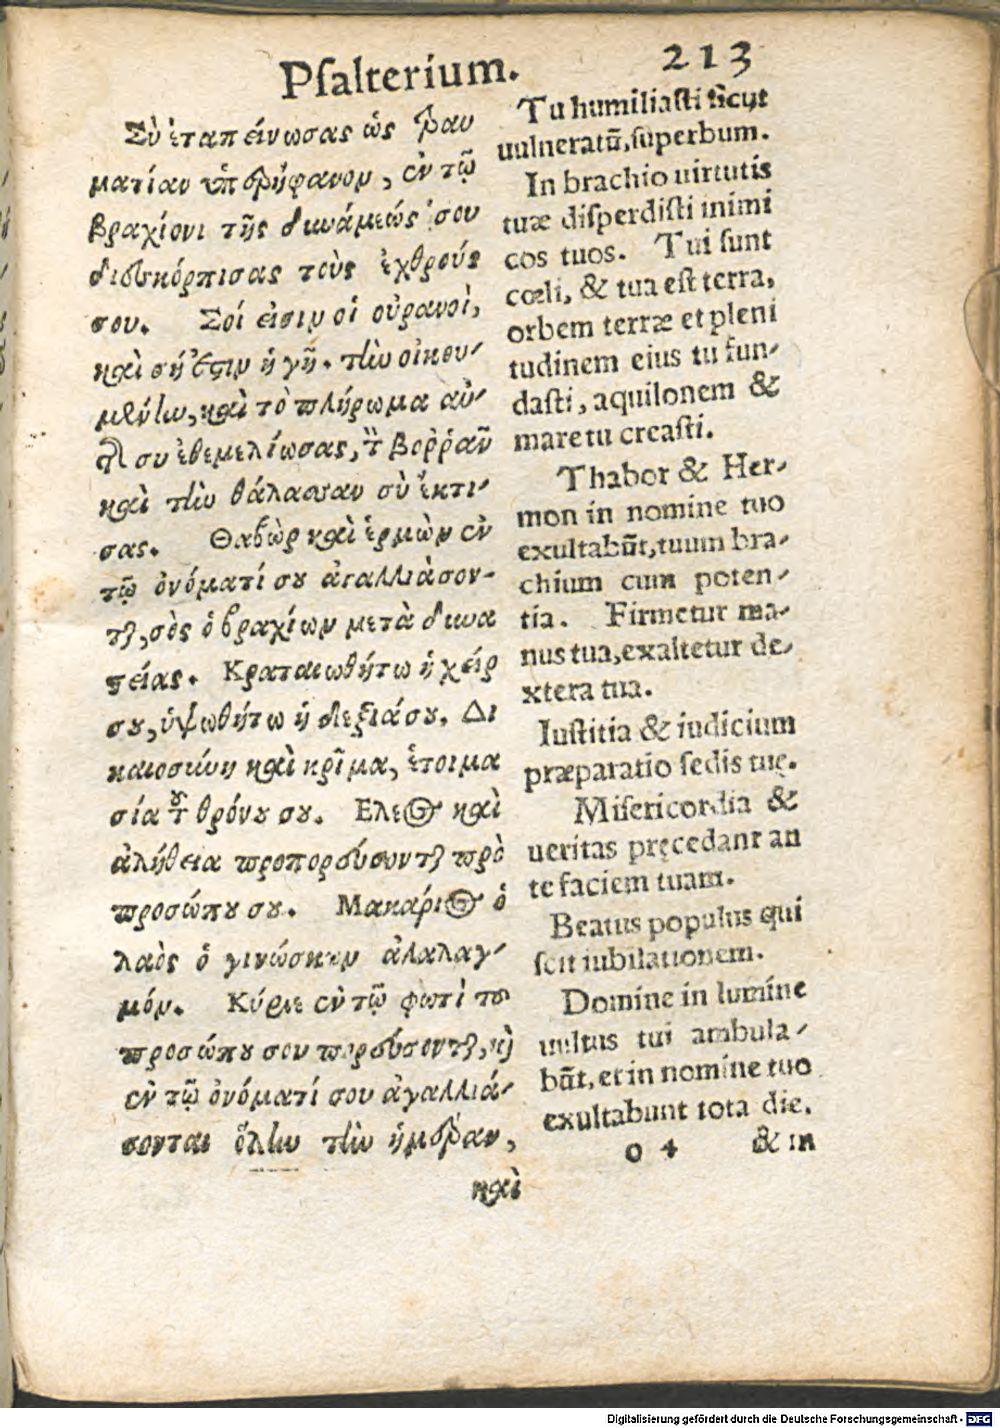 Psalterium. 213
Σὺ ἐταπείνωσας ὡς τραυ
ματίαν ὑπερήφανον, ἐν τῷ
βραχίονι τῆς δυνάμεώς σου
διεσκόρπισας τοὺς ἐχθρούς
σου. Σοί εἰσιν οἱ οὐρανοὶ,
καὶ σή ἐστιν ἡ γῆ. τὴν οἰκου-
μένην, καὶ τὸ πλήρωμα αὐ-
τῆς συ ἐθεμελίωσας, τὸν βοῤῥᾶν
καὶ τὴν θάλασσαν σὺ ἔκτι-
σας. Θαβὼρ καὶ ἑρμὼν ἐν
τῷ ὀνόματί σου ἀγαλλιάσον-
ται, σὸς ὁ βραχίων μετὰ δυνα
τείας. Κραταιωθήτω ἡ χείρ
σου, ὑψωθήτω ἡ δεξιά σου. Δι
καιοσύνη καὶ κρῖμα, ἑτοιμα
σία τοῦ θρόνου σου. Ελεος καὶ
ἀλήθεια προπορεύσονται πρὸ
προσώπου σου. Μακάριος ὁ
λαὸς ὁ γινώσκων ἀλαλαγ-
μόν. Κύριε ἐν τῷ φωτὶ τοῦ
προσώπου σου πορεύσονται, καὶ
ἐν τῷ ὀνόματί σου ἀγαλλιά-
σονται ὅλην τὴν ἡμέραν,
καὶ
Tu humiliasti sicut
uulneratũ, superbum.
In brachio uirtutis
tuæ disperdisti inimi
cos tuos. Tui sunt
cœli, & tua est terra,
orbem terræ et pleni
tudinem eius tu fun-
dasti, aquilonem &
mare tu creasti.
Thabor & Her-
mon in nomine tuo
exultabũt, tuum bra-
chium cum poten-
tia. Firmetur ma-
nus tua, exaltetur de-
xtera tua.
Iustitia & iudicium
præparatio sedis tuę.
Misericordia &
ueritas pręcedant an
te faciem tuam.
Beatus populus qui
scit iubilationem.
Domine in lumine
uultus tui ambula-
bũt, et in nomine tuo
exultabunt tota die.
o 4 & in
Digitalisierung gefördert durch die Deutsche Forschungsgemeinschaft - DFG